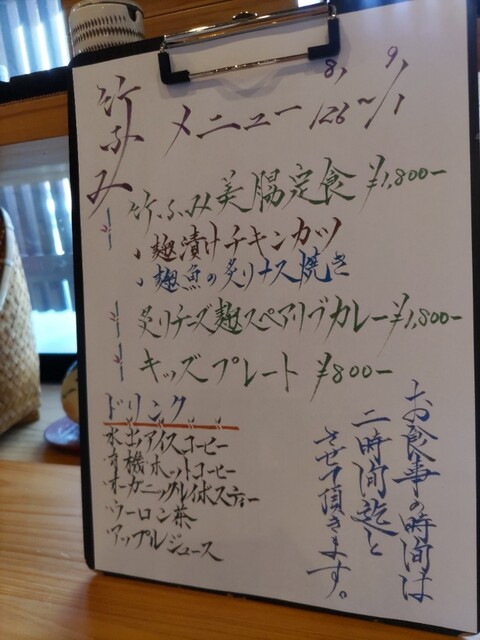 竹ふみ
メニュー 8/26〜9/1
竹ふみ美腸定食 ¥1,800-
・麹漬けチキンカツ
・麹魚の炙りナス焼き
炙りチーズ麹スペアリブカレー ¥1,800-
キッズプレート ¥800-
ドリンク
水出アイスコーヒー
有機ホットコーヒー
オーガニックルイボスティー
ウーロン茶
アップルジュース
お食事の時間は
二時間迄と
させて頂きます。